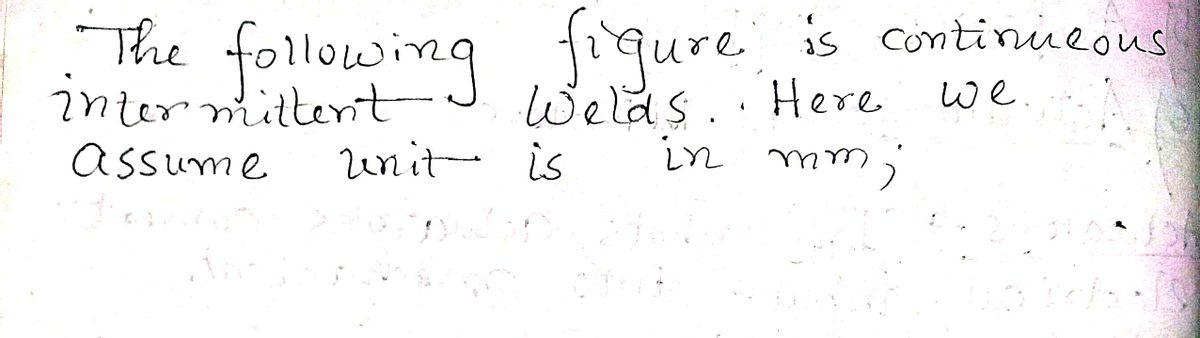 The following figure is continueous
intermittent welds. Here we
assume unit is in mm;